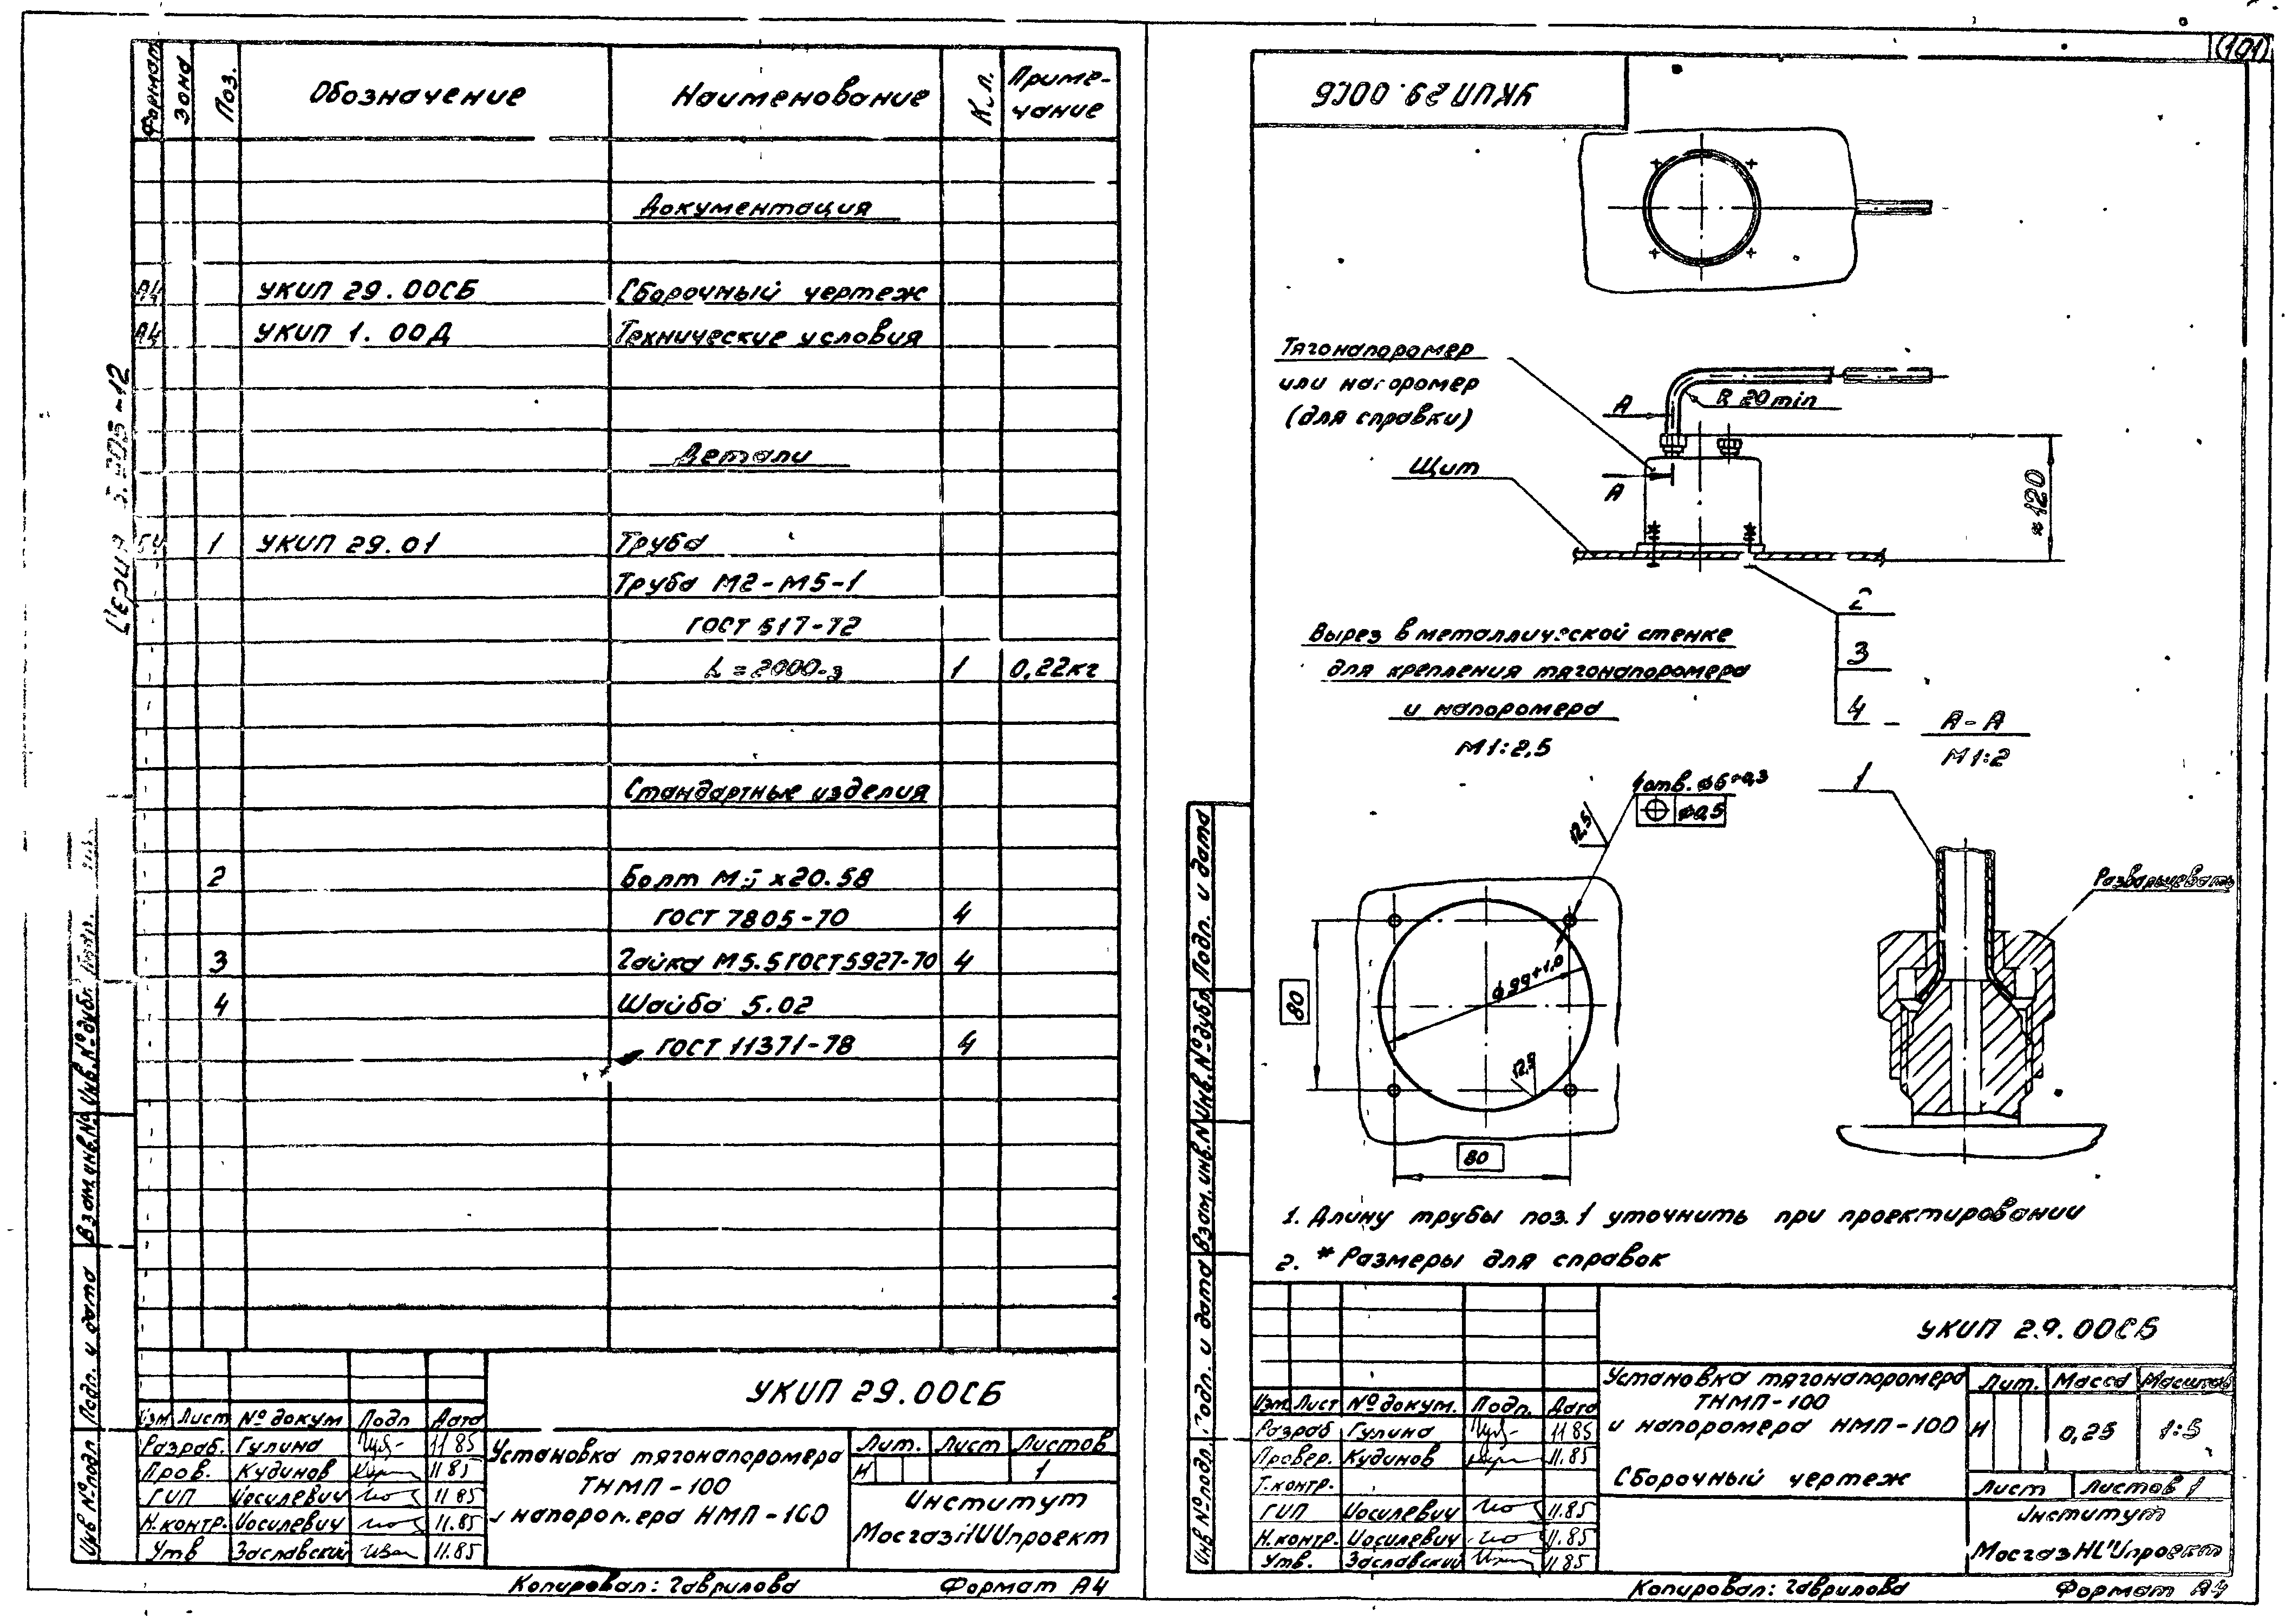 Формат
Зона
Поз.
Обозначение
Наименование
Кол.
Приме-
чание
Документация
А4 УКИП 29.00СБ Сборочный чертеж
А4 УКИП 1.00Д Технические условия
Детали
БЧ 1 УКИП 29.01 Труба
Труба М2-М5-1
ГОСТ 617-72
L=2000-3 1 0,22кг
Стандартные изделия
2 Болт М5х20.58
ГОСТ 7805-70 4
3 Гайка М5.5 ГОСТ 5927-70 4
4 Шайба 5.02
ГОСТ 11371-78 4
Серия 5.905-12
Инв.№ подл.
Подп. и дата
Взам.инв.№
Инв.№ дубл.
Подп.
УКИП 29.00СБ
Изм Лист № докум Подп Дата
Разраб. Гулина 11 85
Пров. Кудинов 11 85
ГИП Иосилевич 11 85
Н.контр. Иосилевич 11.85
Утв Заславский 11.85
Установка тягонапоромера
ТНМП-100
и напоромера НМП-100
Лит. Лист Листов
И 1
Институт
МосгазНИИпроект
Копировал: Гаврилова Формат А4
(101)
УКИП 29.00СБ
Тягонапоромер
или напоромер
(для справки)
R 20 min
А
А
Щит
*120
2
3
4
Вырез в металлической стенке
для крепления тягонапоромера
и напоромера
М1:2,5
А-А
М1:2
1
4 отв. ⌀6+0,3
⌀0,5
12,5
Развальцевать
80
⌀99+1,0
12,5
80
1. Длину трубы поз.1 уточнить при проектировании
2. * Размеры для справок
Инв №подл.
Подп. и дата
Взам.инв.№
Инв.№ дубл.
Подп. и дата
УКИП 29.00СБ
Изм Лист № докум. Подп. Дата
Разраб Гулина 11 85
Провер. Кудинов 11.85
Т.контр.
ГИП Иосилевич 11.85
Н.контр. Иосилевич 11.85
Утв. Заславский 11.85
Установка тягонапоромера
ТНМП-100
и напоромера НМП-100
Сборочный чертеж
Лит. Масса Масштаб
И 0,25 1:5
Лист Листов 1
Институт
МосгазНИИпроект
Копировал: Гаврилова Формат А4